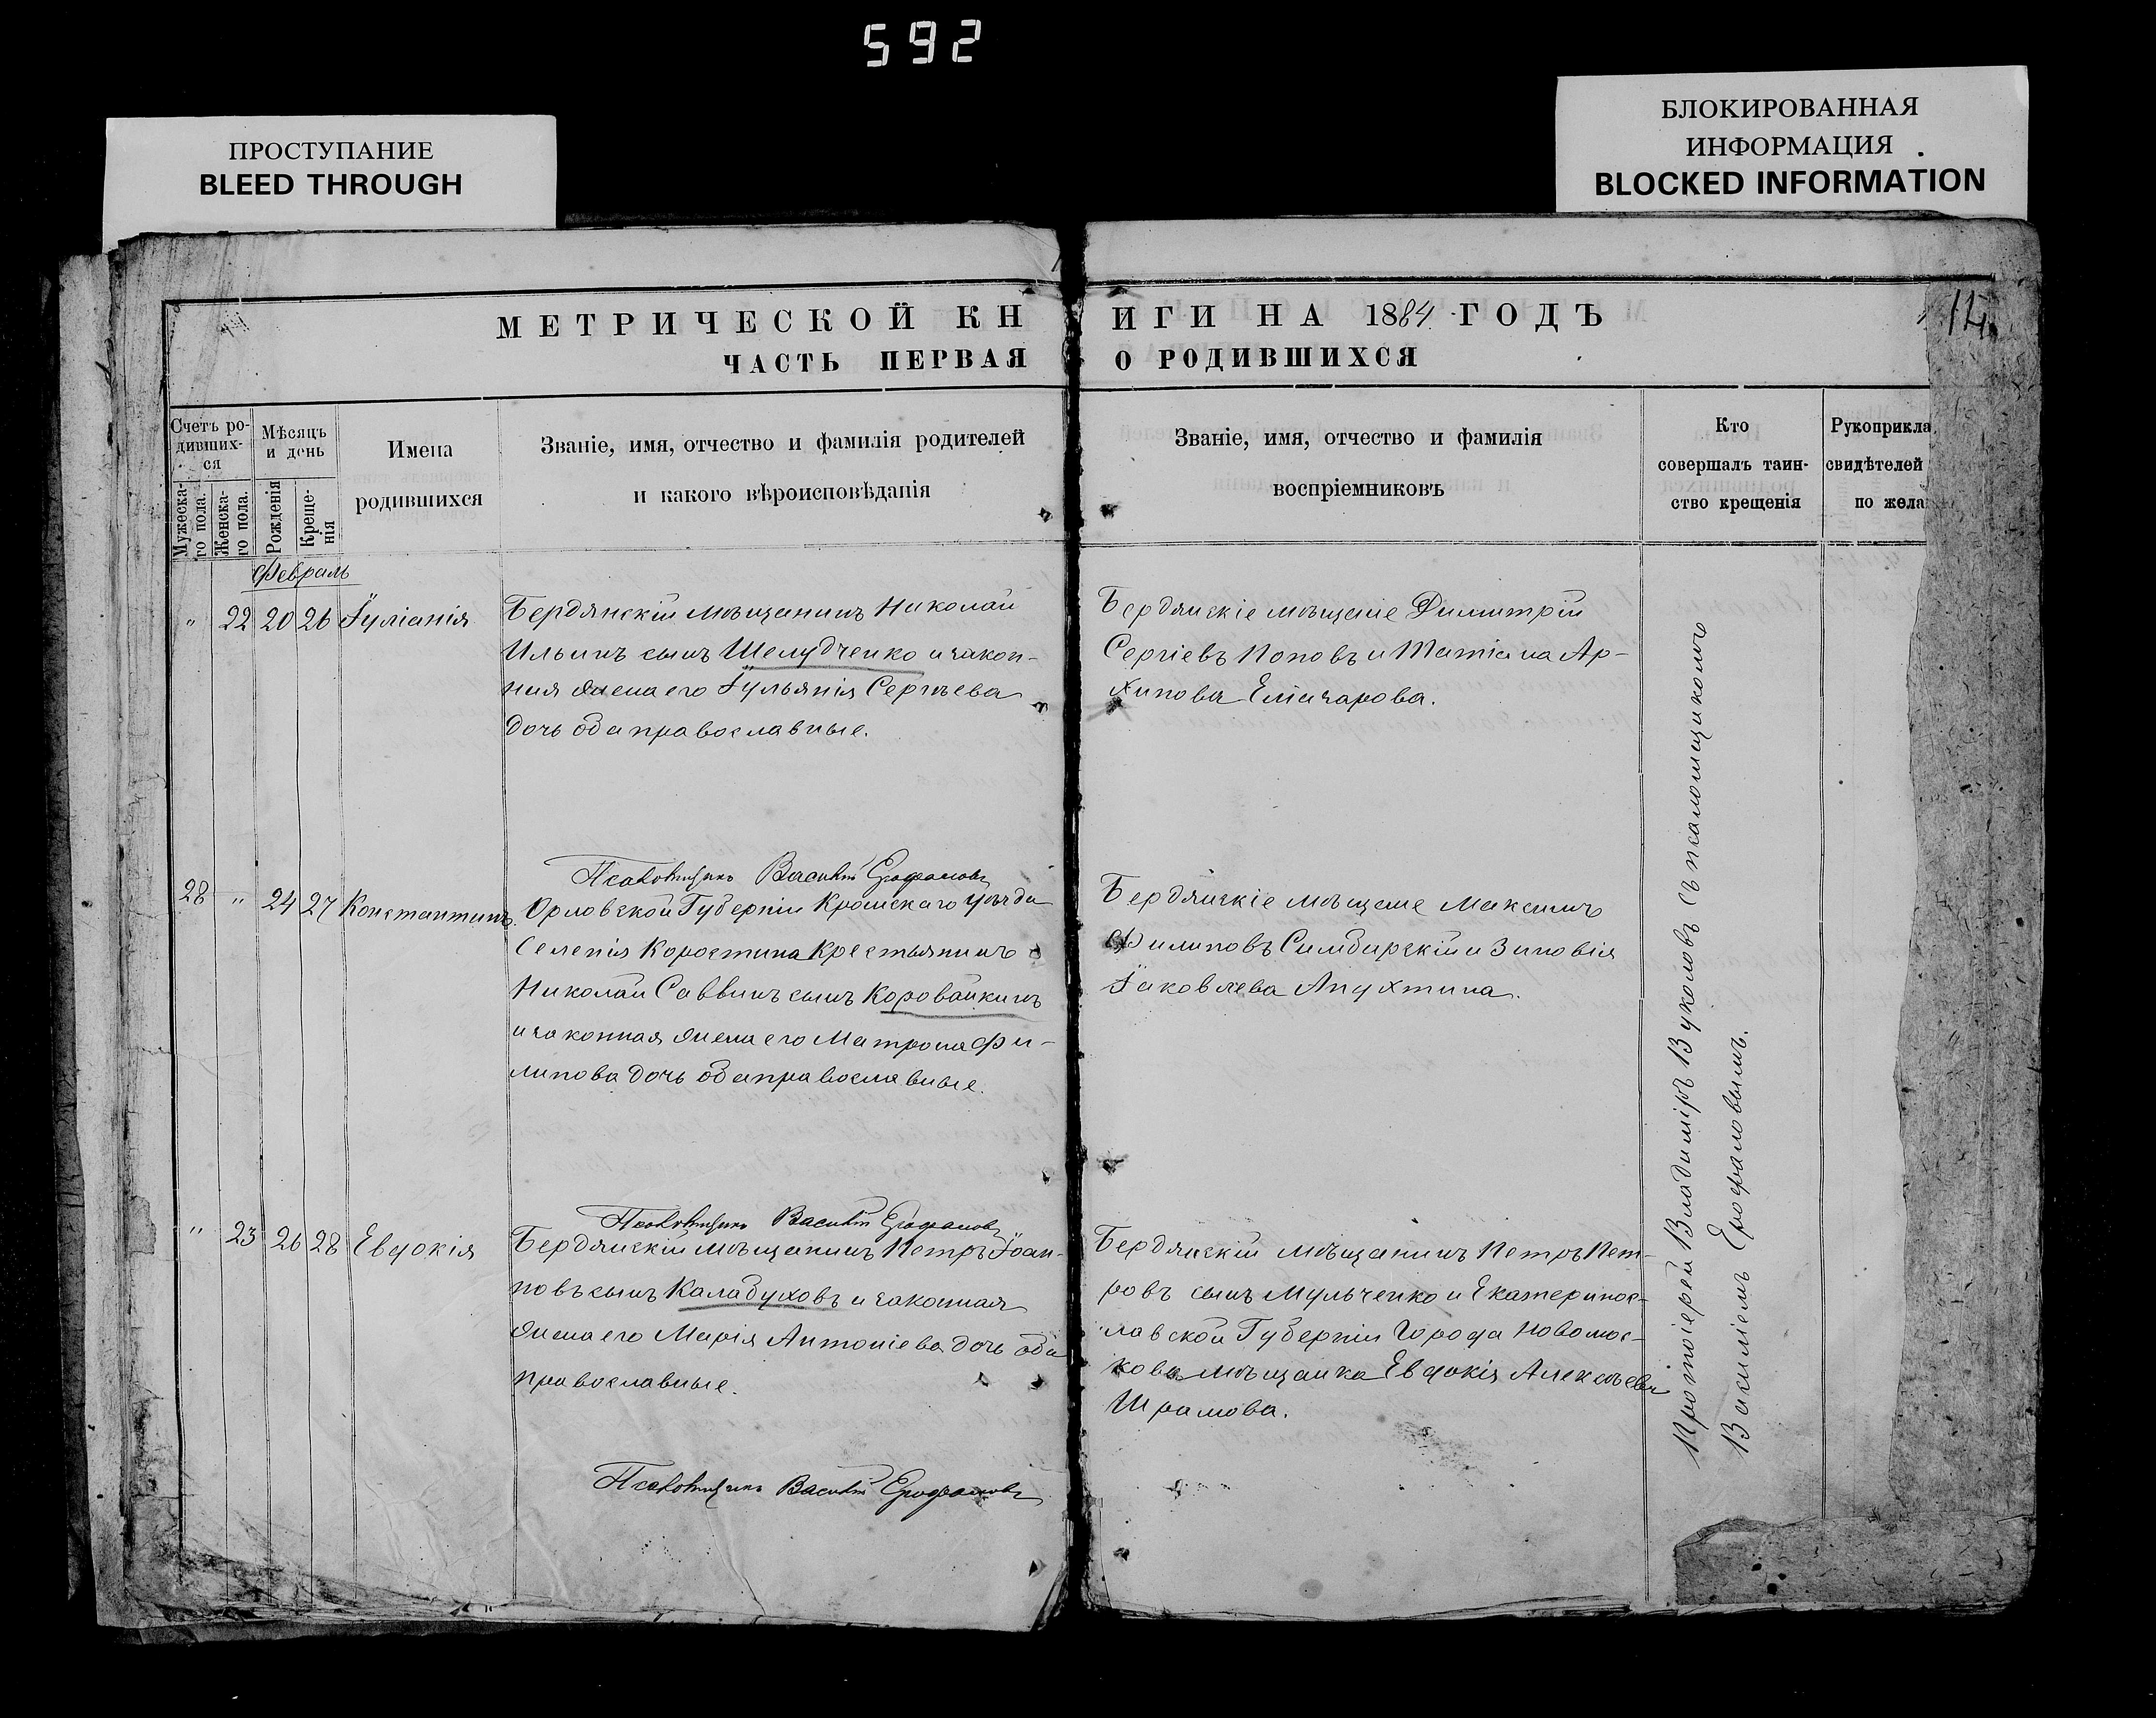 592
ПРОСТУПАНИЕ
BLEED THROUGH
БЛОКИРОВАННАЯ
ИНФОРМАЦИЯ
BLOCKED INFORMATION
МЕТРИЧЕСКОЙ КНИГИ НА 1884 ГОДЪ
ЧАСТЬ ПЕРВАЯ О РОДИВШИХСЯ
Счетъ ро-
дивших-
ся
Мужеска-
го пола.
Женска-
го пола.
Мѣсяцъ
и день
Рожденія
Креще-
нія
Имена
родившихся
Званіе, имя, отчество и фамилія родителей
и какого вѣроисповѣданія
Званіе, имя, отчество и фамилія
воспріемниковъ
Кто
совершалъ таин-
ство крещенія
Рукоприкла
свидѣтелей
по жела
Февраль
" 22 20 26 Іуліанія
Бердянскій мѣщанинъ Николай
Ильинъ сынъ Шелудченко и закон-
ная жена его Іульянія Сергѣева
дочь оба православные.
Бердянскіе мѣщане Димитрій
Сергіевъ Поповъ и Татіана Ар-
хипова
Псаломщикъ Василій Ерофаловъ
28 " 24 27 Константинъ.
Орловской Губерніи Кромскаго уѣзда
Селенія Коростина Крестьянинъ
Николай Саввинъ сынъ Коровайкинъ
и законная жена его Матрона Фи-
липова дочь оба православные.
Бердянскіе мѣщане Максимъ
Филиповъ Симбирскій и Зиновія
Іаковлева Апухтина.
Псаломщикъ Василій Ерофаловъ
" 23 26 28 Евдокія
Бердянскій мѣщанинъ Петръ Іоан-
новъ сынъ Калабуховъ и законная
жена его Марія Антоніева дочь оба
православные.
Бердянскій мѣщанинъ Петръ Пет-
ровъ сынъ Мульченко и Екатеринос-
лавской Губерніи Города Новомос-
ковка мѣщанка Евдокія Алексѣева
Шрамова.
Псаломщикъ Василій Ерофаловъ
Протоіерей Владиміръ Вуколовъ съ псаломщикомъ
Василіемъ Ерофаловымъ.